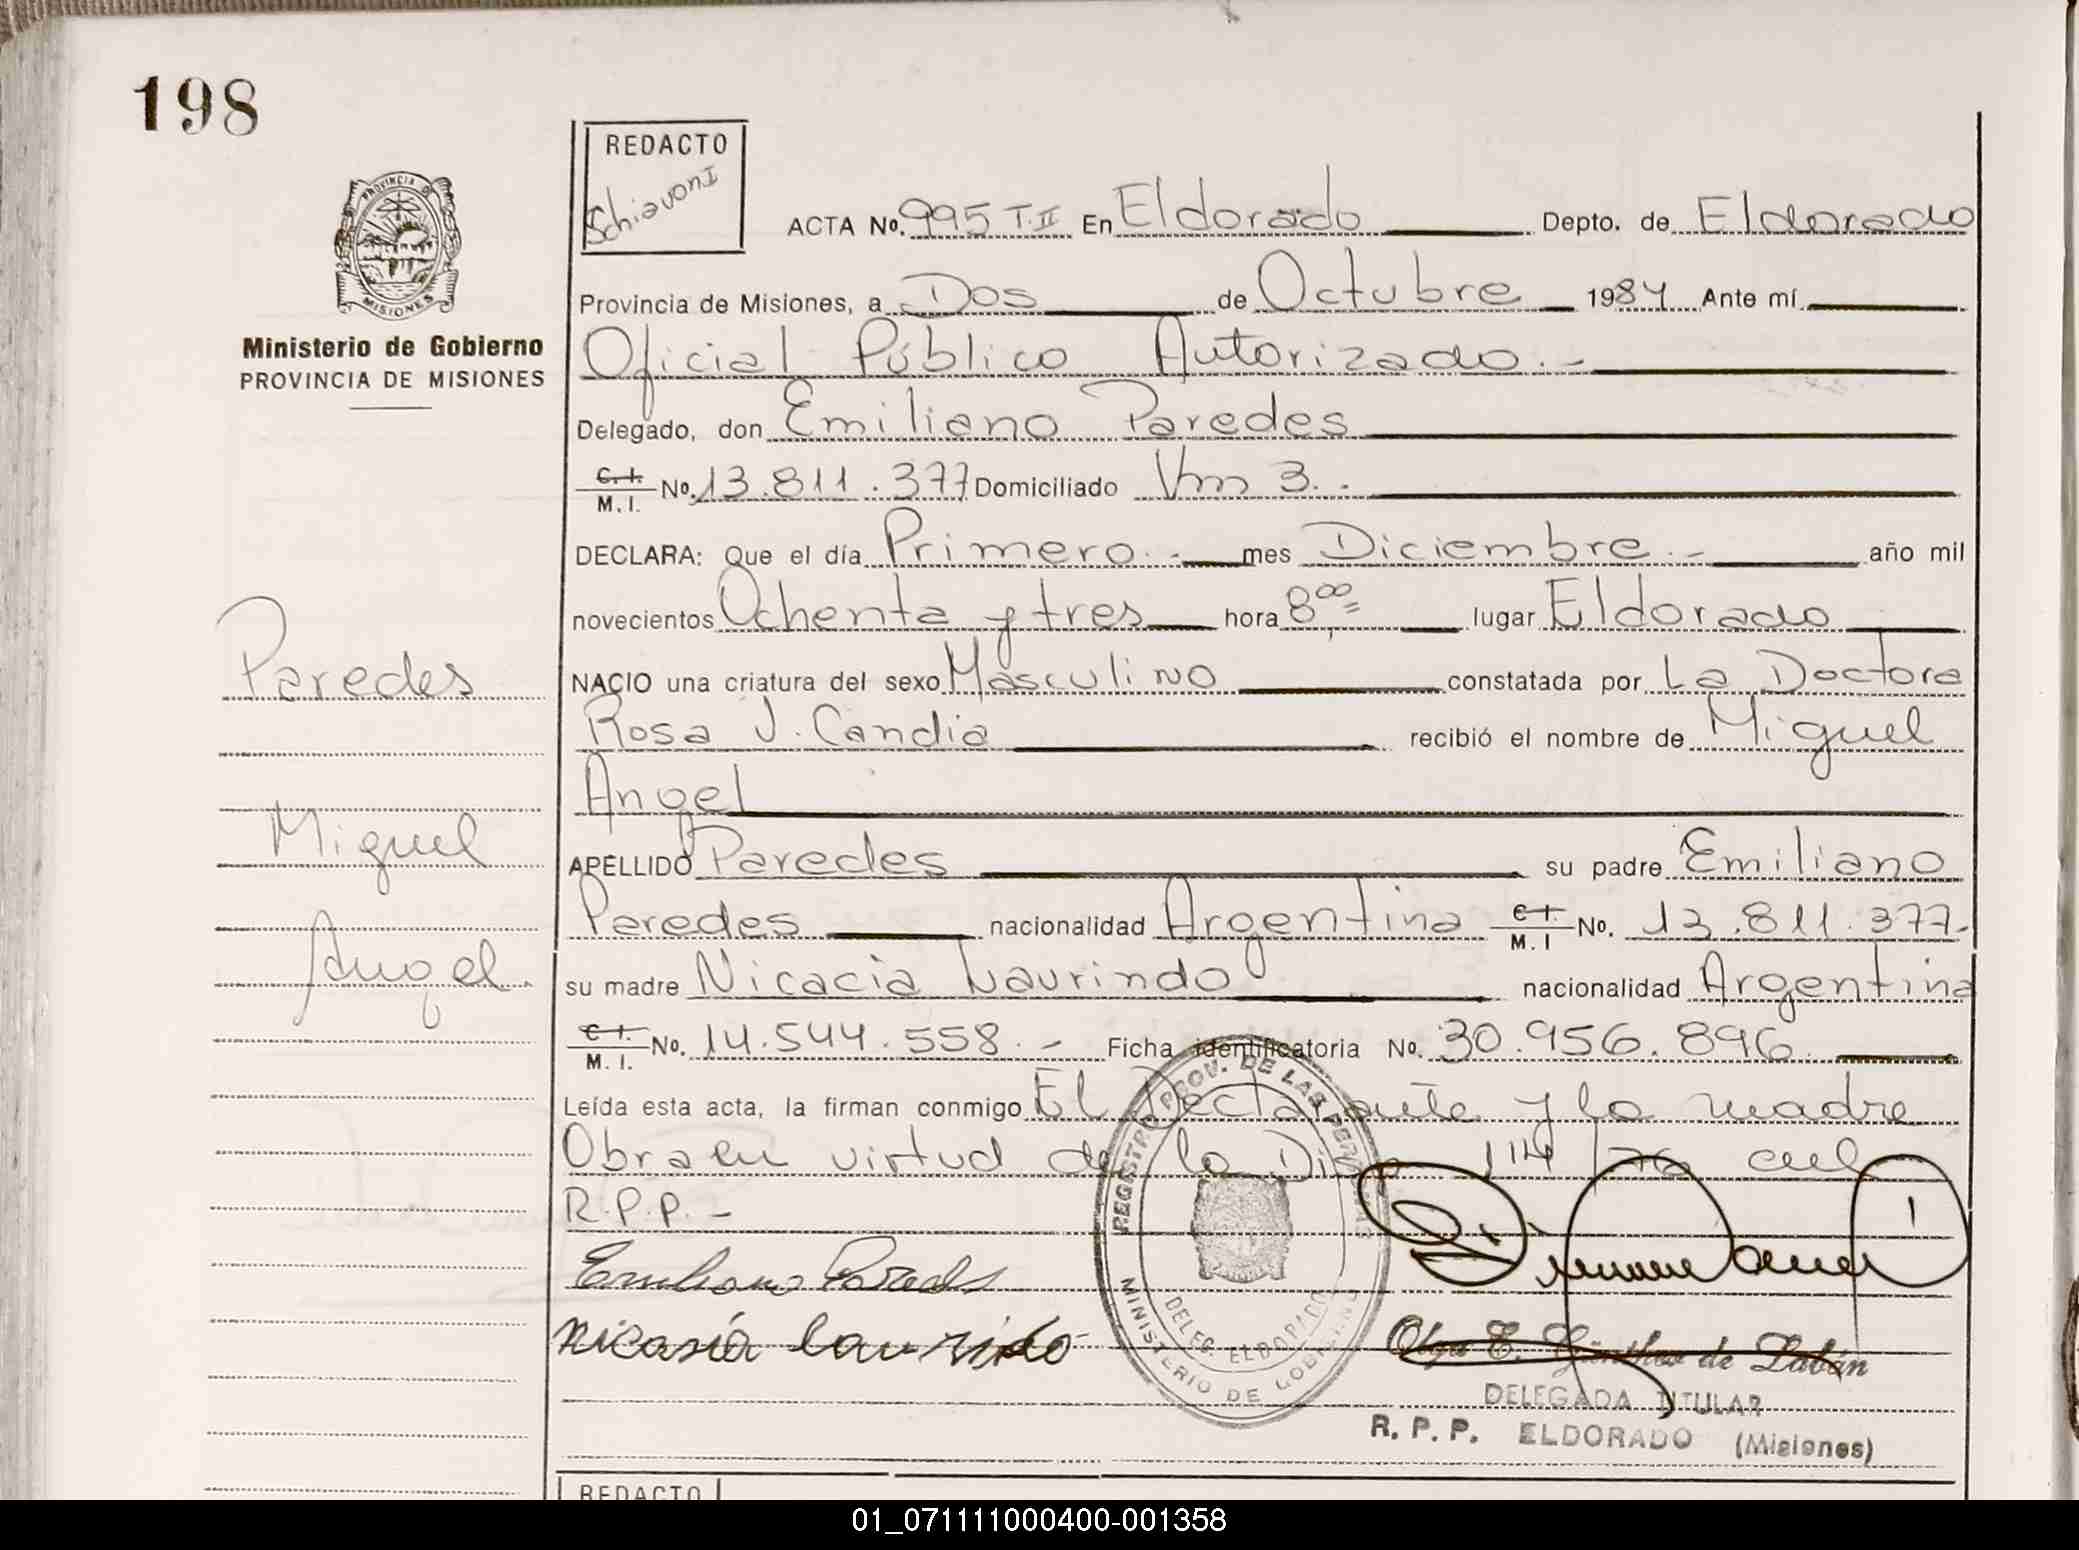 198
REDACTO
Schiavoni
PROVINCIA D
MISIONES
Ministerio de Gobierno
PROVINCIA DE MISIONES
ACTA No. 995 T. II En Eldorado Depto. de Eldorado
Provincia de Misiones, a Dos de Octubre 1984 Ante mí
Oficial Público Autorizado.-
Delegado, don Emiliano Paredes
C. I. M. I. No. 13.811.377 Domiciliado Km 3.-
DECLARA: Que el día Primero.- mes Diciembre.- año mil
novecientos Ochenta y tres hora 8,00= lugar Eldorado
Paredes
NACIO una criatura del sexo Masculino constatada por La Doctora
Rosa J. Candia recibió el nombre de Miguel
Angel
Miguel
APELLIDO Paredes su padre Emiliano
Paredes nacionalidad Argentina C. I. M. I No. 13.811.377-
Angel.
su madre Nicacia Laurindo nacionalidad Argentina
C. I. M. I. No. 14.544.558.- Ficha identificatoria No. 30.956.896
Leída esta acta, la firman conmigo El Declarante y la madre
Obra en virtud de la 114/76 del
R.P.P.-
Emiliano Paredes
Nicasia Laurido
REGISTRO PROV. DE LAS PERSONAS
MINISTERIO DE GOBIERNO
DELEG. ELDORADO
Olga E. Günther de Labán
DELEGADA TITULAR
R. P. P. ELDORADO (Misiones)
REDACTO
01_071111000400-001358